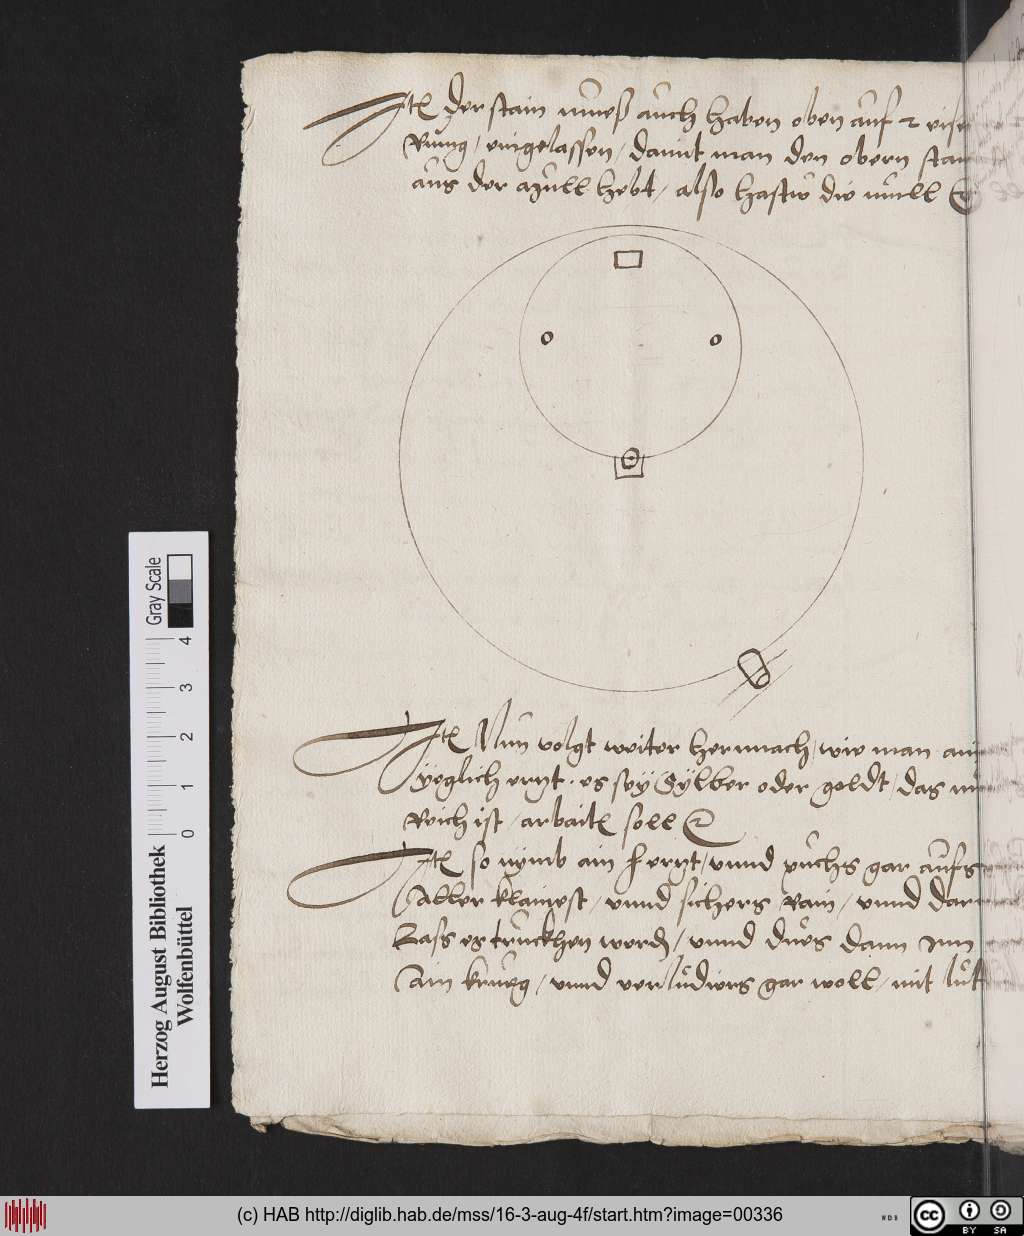 Jt[em] der stain mues auch haben oben auf 2 eise
Ring / eingelassen / damit man den obern stain
aus der müll hebt / also hastu die müll
Jt[em] Nun volgt weiter hernnach / wie man ain
yeglich ertzt es sey Sylber oder goldt / das
Reich ist / arbait[en] soll
Jt[em] so nymb ain ertzt / vnnd puchs gar aufs
Aller klainest / vnnd sichers Rain / vnnd dar
Lass es truckhen werd[en] / vnnd dues dann Jnn
Ain krueg / vnnd verludiers gar woll / mit lut
Gray Scale
0 1 2 3 4
Herzog August Bibliothek
Wolfenbüttel
(c) HAB http://diglib.hab.de/mss/16-3-aug-4f/start.htm?image=00336
WDB
cc
BY SA